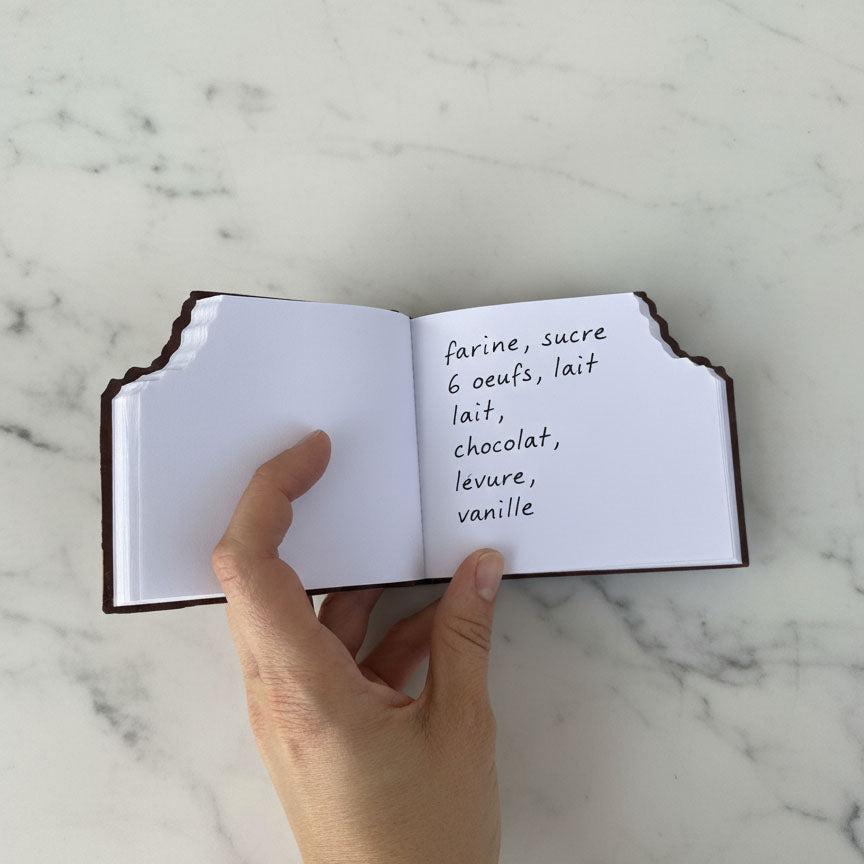 farine, sucre
6 oeufs, lait
lait,
chocolat,
lévure,
vanille